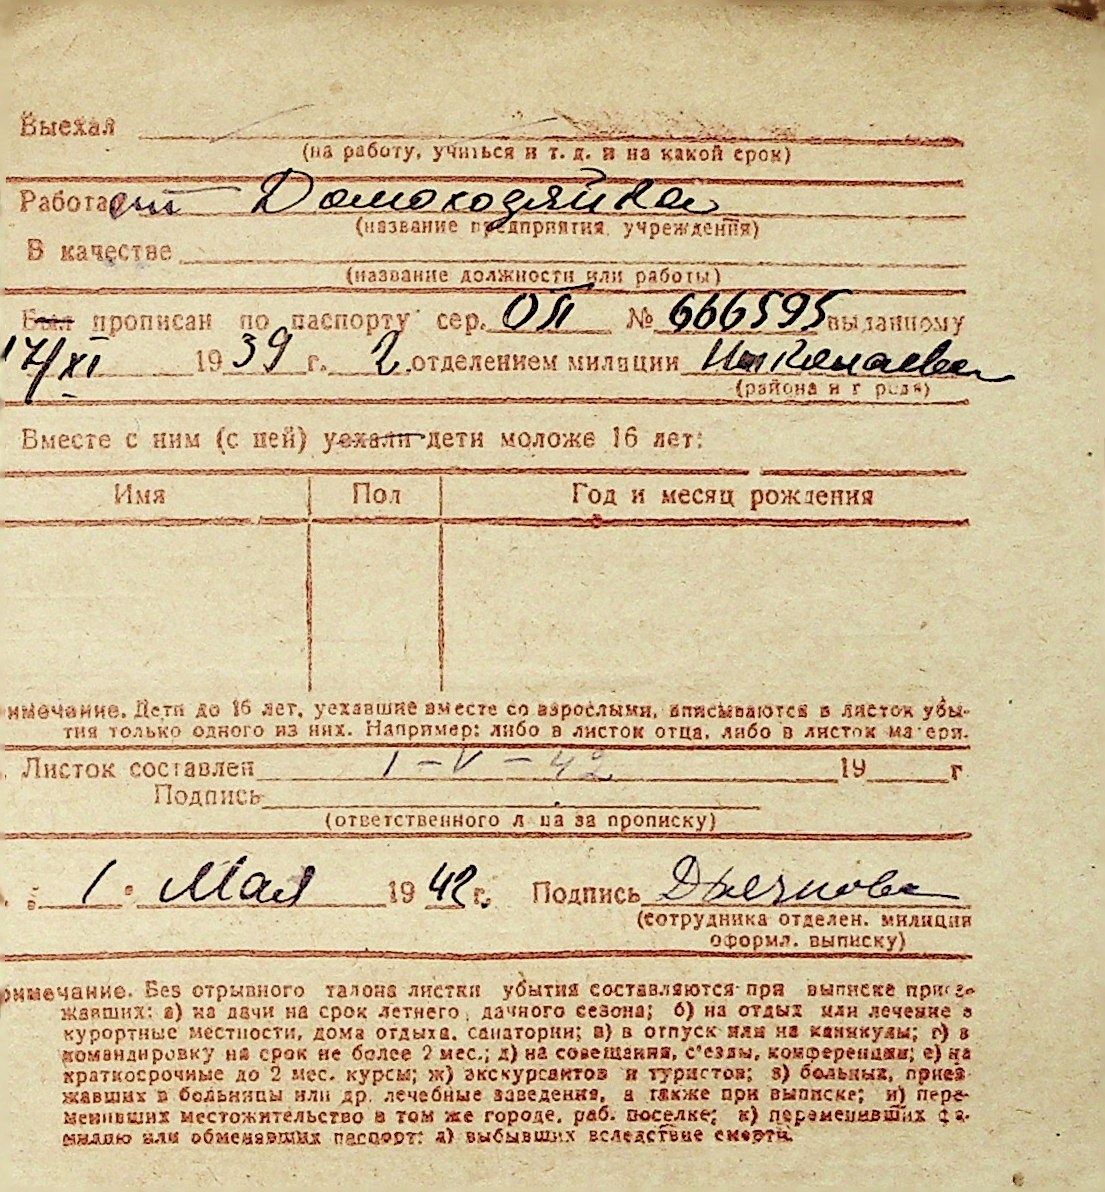 Выехал
(на работу, учиться и т. д. и на какой срок)
Работает Домохозяйка
(название предприятия, учреждения)
В качестве
(название должности или работы)
Был прописан по паспорту сер. ОП № 666595 выданному
17/XI 1939 г. 2 отделением милиции Николаева
(района и г рода)
Вместе с ним (с ней) уехали дети моложе 16 лет:
Имя Пол Год и месяц рождения
имечание. Дети до 16 лет, уехавшие вместе со взрослыми, вписываются в листок убы-
тия только одного из них. Например: либо в листок отца, либо в листок матери.
Листок составлен I-V-42 19 г
Подпись
(ответственного л ца за прописку)
1 " Мая 1942 г. Подпись
(сотрудника отделен. милиции
оформл. выписку)
римечание. Без отрывного талона листки убытия составляются при выписке приез-
жавших: а) на дачи на срок летнего, дачного сезона; б) на отдых или лечение в
курортные местности, дома отдыха, санатории; в) в отпуск или на каникулы; г) в
командировку на срок не более 2 мес.; д) на совещания, с'езды, конференции; е) на
краткосрочные до 2 мес. курсы; ж) экскурсантов и туристов; з) больных, приез-
жавших в больницы или др. лечебные заведения, а также при выписке; и) пере-
менивших местожительство в том же городе, раб. поселке; к) переменивших фа-
милию или обменявших паспорт; л) выбывших вследствие смерти.